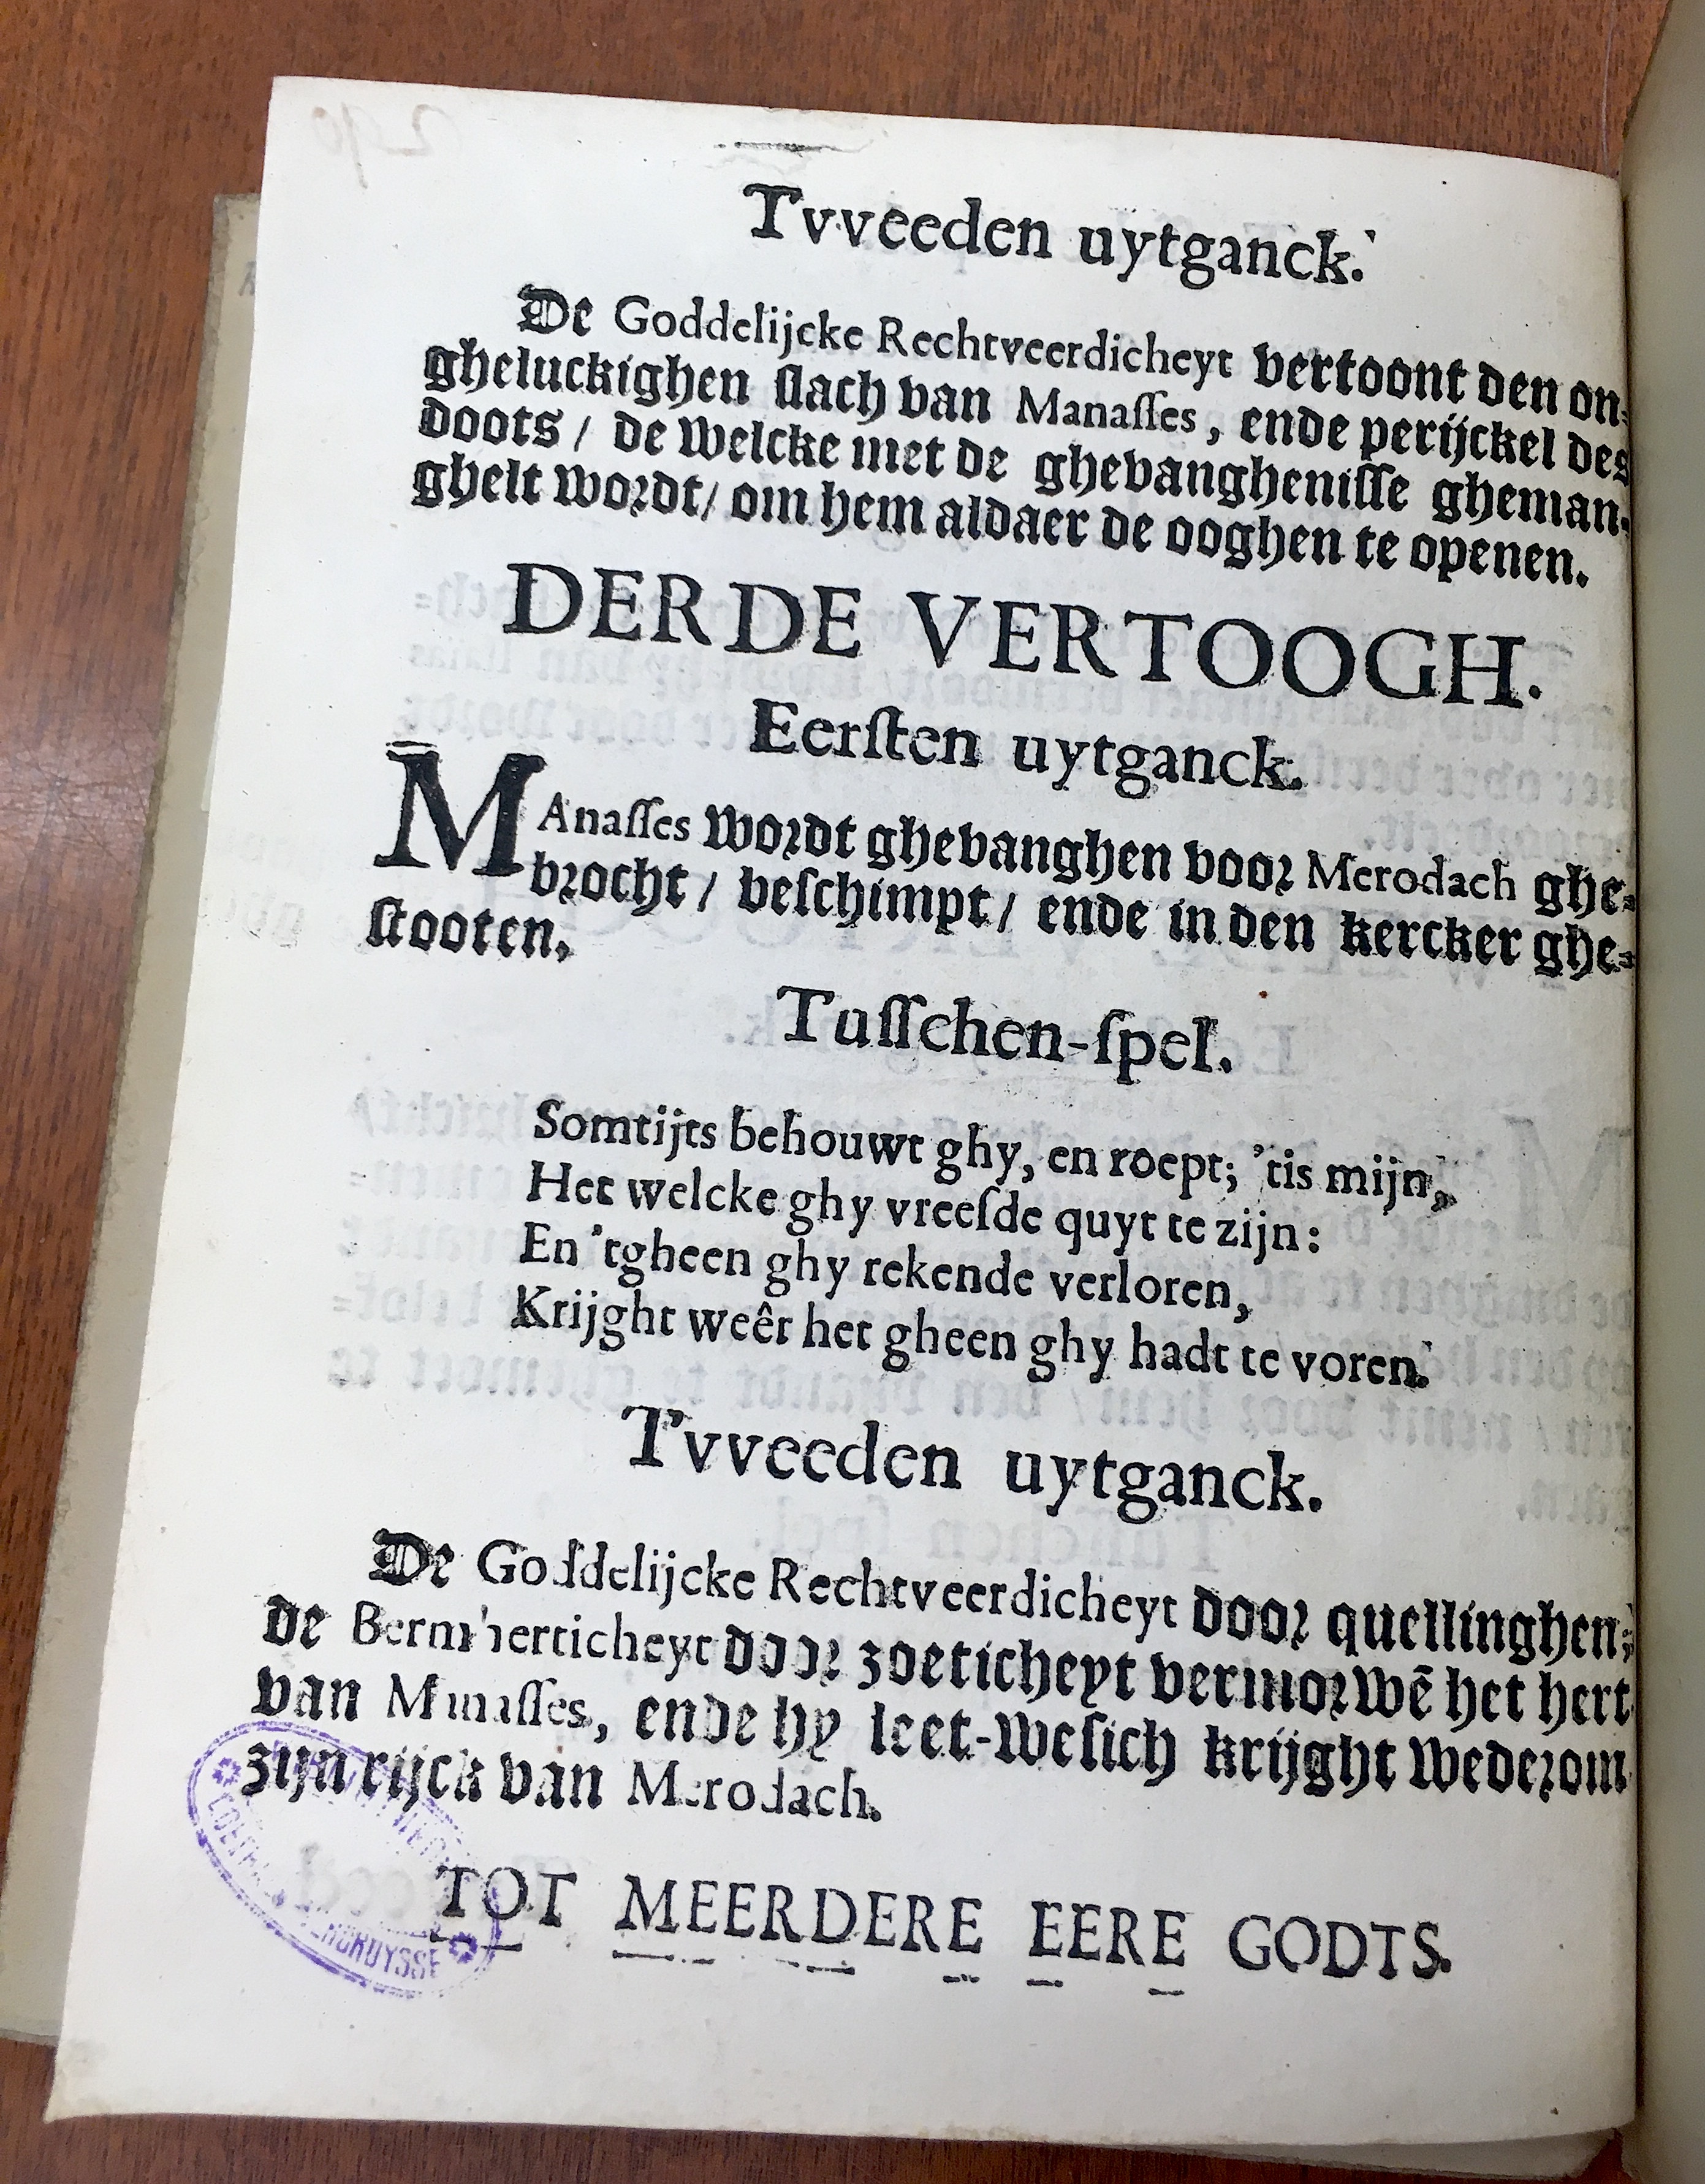 Tvveeden uytganck.
De Goddelijcke Rechtveerdicheyt vertoont den on-
gheluckighen slach van Manasses, ende perijckel des
doots / de welcke met de ghevanghenisse gheman-
ghelt wordt / om hem aldaer de ooghen te openen.
DERDE VERTOOGH.
Eersten uytganck.
MAnasses wordt ghevanghen voor Merodach ghe-
brocht / beschimpt / ende in den kercker ghe-
stooten.
Tusschen-spel.
Somtijts behouwt ghy, en roept; 'tis mijn,
Het welcke ghy vreesde quyt te zijn:
En 'tgheen ghy rekende verloren,
Krijght weêr het gheen ghy hadt te voren.
Tvveeden uytganck.
De Goddelijcke Rechtveerdicheyt door quellinghen;
de Bermherticheyt door zoeticheyt vermorwē het hert
van Manasses, ende hy leet-wesich krijght wederom
zijn rijck van Merodach.
TOT MEERDERE EERE GODTS.